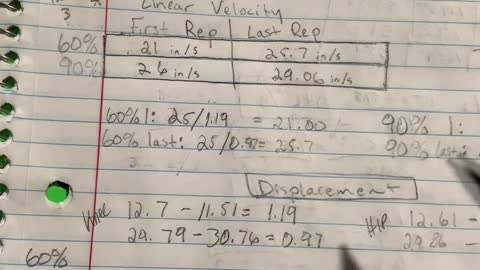 Linear Velocity
3
First Rep Last Rep
60% 21 in/s 25.7 in/s
90% 26 in/s 29.06 in/s
60% 1: 25/1.19 = 21.00 90% 1:
60% last: 25/0.97= 25.7 90% last:
Displacement
12.7 - 11.51 = 1.19 HIP 12.61 -
29.79 - 30.76 = 0.97 29.86 -
60%